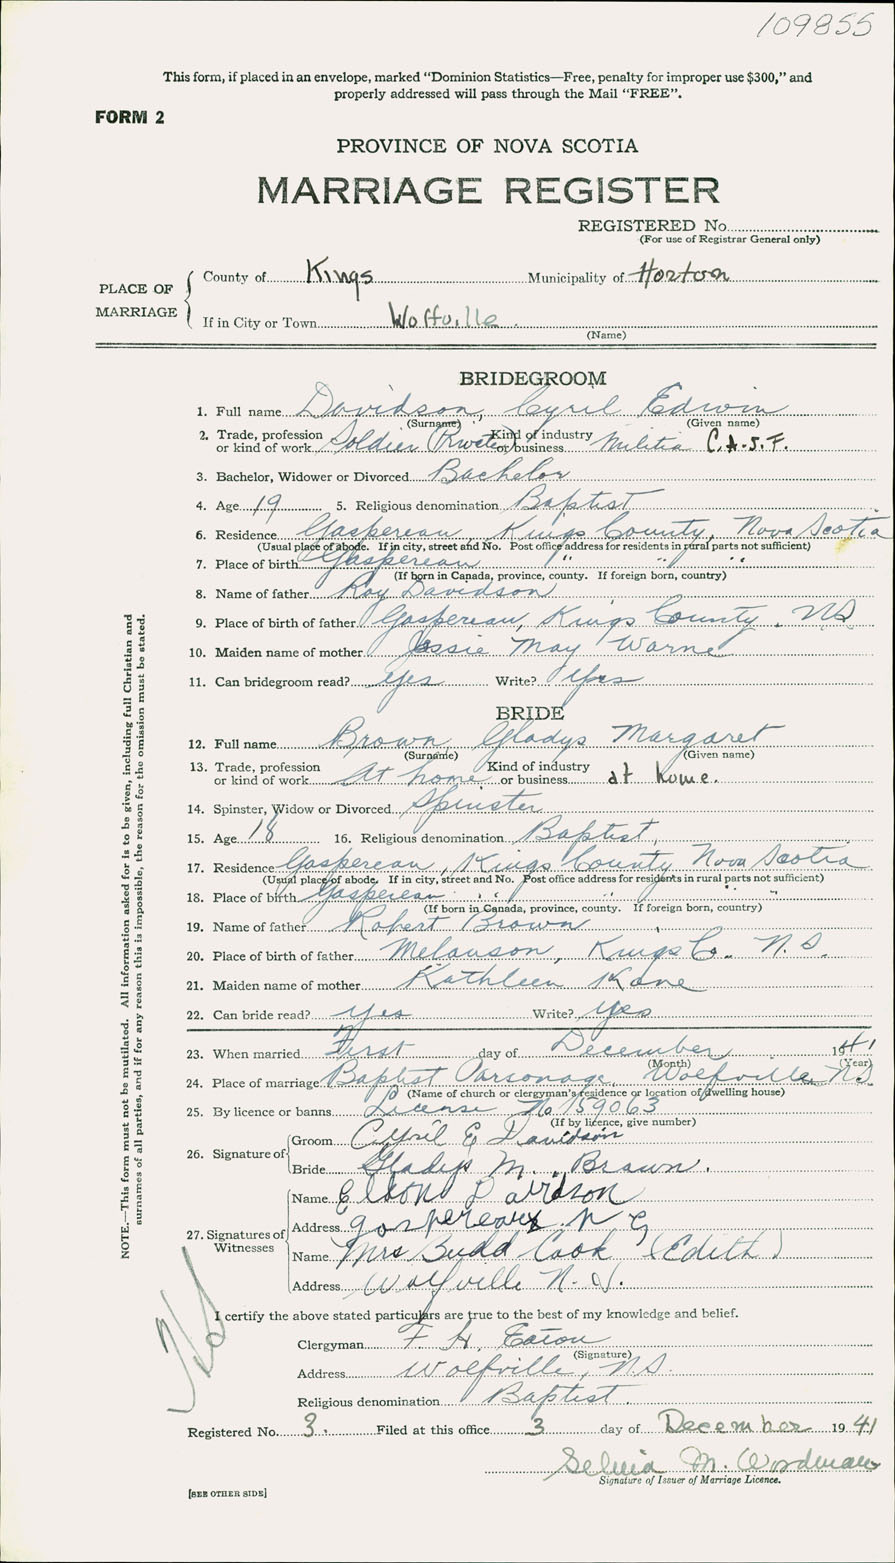 109855
This form, if placed in an envelope, marked “Dominion Statistics—Free, penalty for improper use $300,” and
properly addressed will pass through the Mail “FREE”.
FORM 2
PROVINCE OF NOVA SCOTIA
MARRIAGE REGISTER
REGISTERED No.
(For use of Registrar General only)
PLACE OF MARRIAGE
County of Kings Municipality of Horton
If in City or Town Wolfville
(Name)
BRIDEGROOM
1. Full name Davidson, Cyril Edwin
(Surname) (Given name)
2. Trade, profession or kind of work Soldier (Private) Kind of industry or business Militia C.A.S.F.
3. Bachelor, Widower or Divorced Bachelor
4. Age 19 5. Religious denomination Baptist
6. Residence Gaspereau, Kings County, Nova Scotia
(Usual place of abode. If in city, street and No. Post office address for residents in rural parts not sufficient)
7. Place of birth Gaspereau " " "
(If born in Canada, province, county. If foreign born, country)
8. Name of father Roy Davidson
9. Place of birth of father Gaspereau, Kings County. NS
10. Maiden name of mother Jessie May Warne
11. Can bridegroom read? yes Write? Yes
BRIDE
12. Full name Brown, Gladys Margaret
(Surname) (Given name)
13. Trade, profession or kind of work At home Kind of industry or business at home.
14. Spinster, Widow or Divorced Spinster
15. Age 18 16. Religious denomination Baptist
17. Residence Gaspereau, Kings County Nova Scotia
(Usual place of abode. If in city, street and No. Post office address for residents in rural parts not sufficient)
18. Place of birth Gaspereau " " "
(If born in Canada, province, county. If foreign born, country)
19. Name of father Robert Brown
20. Place of birth of father Melanson, Kings Co. N.S.
21. Maiden name of mother Kathleen Kane
22. Can bride read? yes Write? yes
23. When married First day of December 1941
(Month) (Year)
24. Place of marriage Baptist Parsonage, Wolfville NS
(Name of church or clergyman's residence or location of dwelling house)
25. By licence or banns License No 159063
(If by licence, give number)
26. Signature of
Groom Cyril E Davidson
Bride Gladys M. Brown.
27. Signatures of Witnesses
Name Davidson
Address gaspereaux N
Name Mrs Budd Cook (Edith)
Address Wolfville N.S.
I certify the above stated particulars are true to the best of my knowledge and belief.
Clergyman F. H. Eaton
(Signature)
Address Wolfville, NS.
Religious denomination Baptist.
Registered No. 3. Filed at this office 3 day of December 1941
Selvia M. Wordman
Signature of Issuer of Marriage Licence.
[SEE OTHER SIDE]
NOTE.—This form must not be mutilated. All information asked for is to be given, including full Christian and
surnames of all parties, and if for any reason this is impossible, the reason for the omission must be stated.